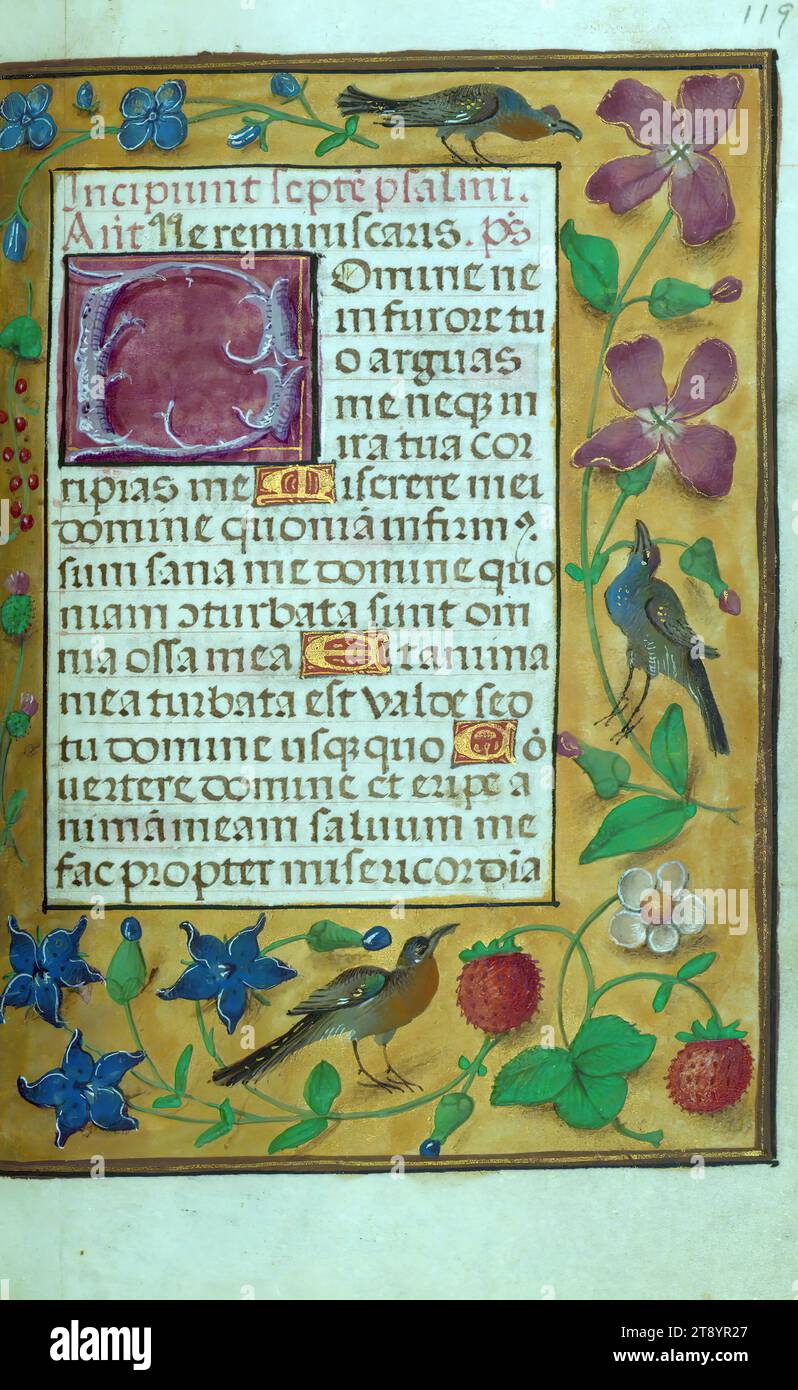 119
Incipiunt septē psalmi.
Añt Ne reminiscaris. p̄s
Domine ne
in furore tu
o arguas
me neqꝫ in
ira tua cor
ripias me Miserere mei
domine quoniā infirmꝰ
sum sana me domine quo
niam ɔturbata sunt om
nia ossa mea Et anima
mea turbata est valde sed
tu domine usqꝫ quo Cō
vertere domine et eripe a
nimā meam saluum me
fac propter misericordia
alamy
Image ID: 2T8YR27
www.alamy.com